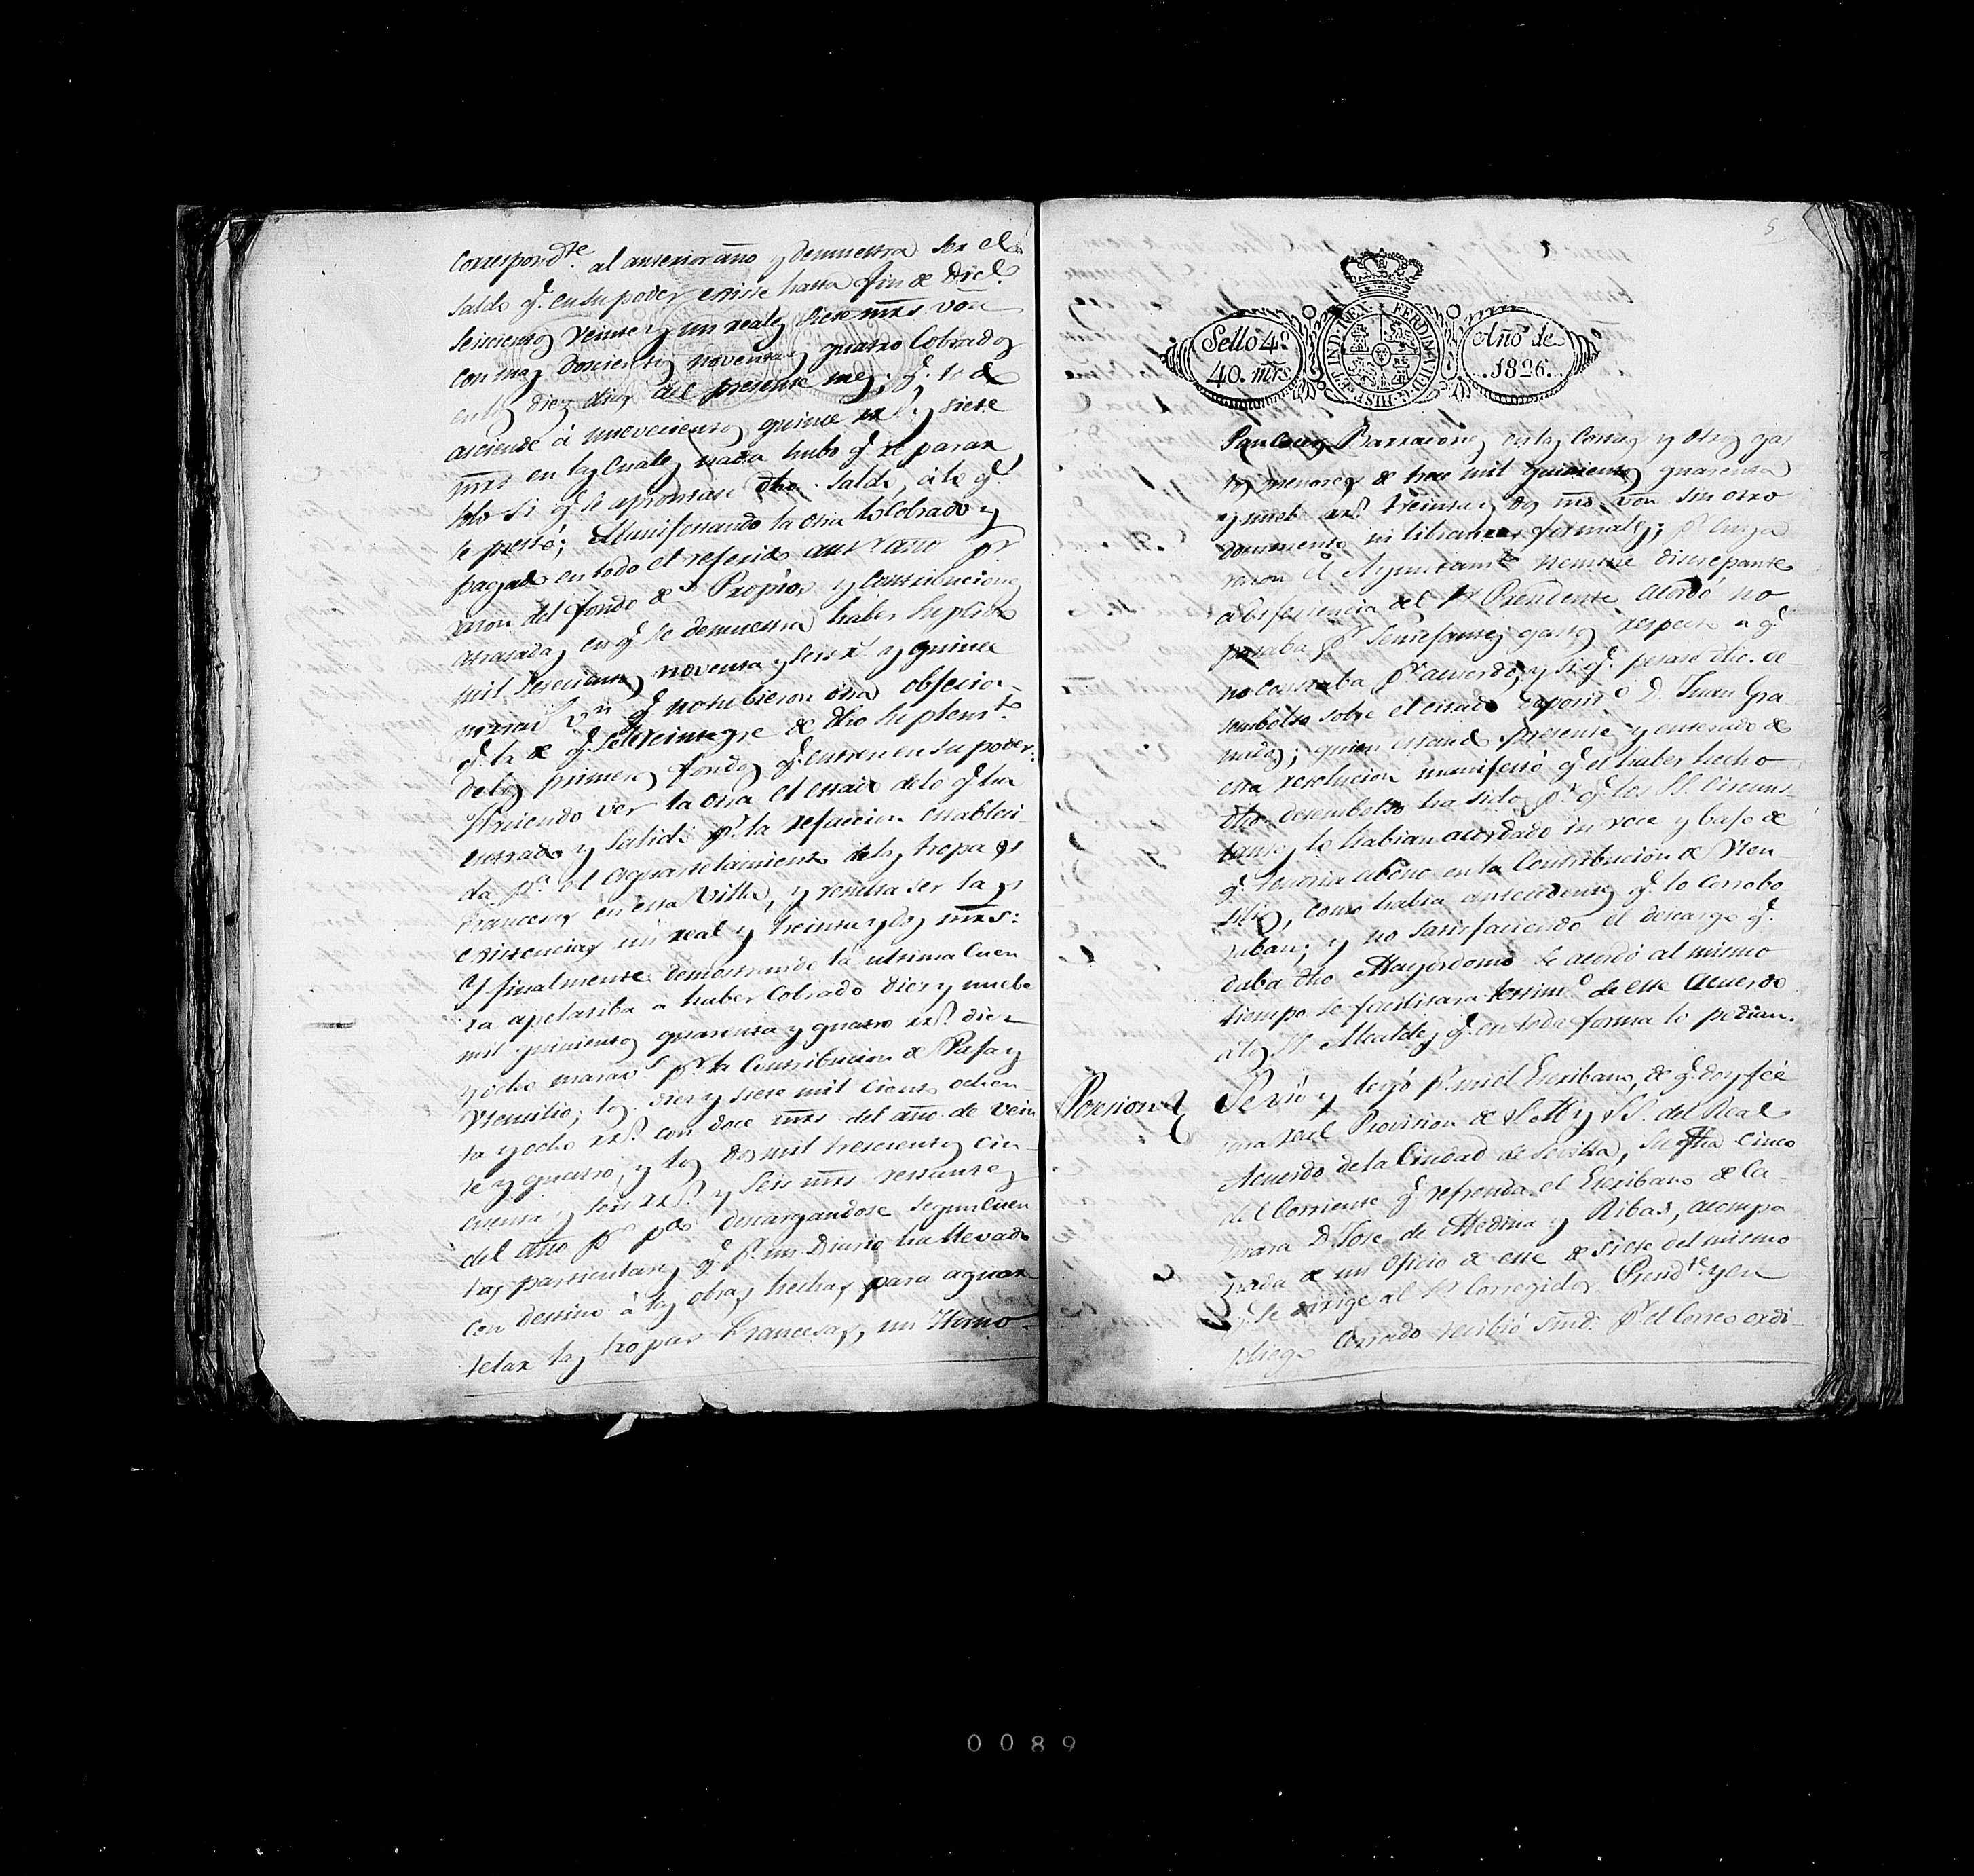 correspond.te al anterior año y demuestra ser el
saldo q.e en su poder existe hasta fin de Dic.e
seiscientos veinte y un reales siete mrs von
con mas doscientos noventa y quatro Cobrados
en los diez dias del presente mes; q.e todo
asciende á nuevecientos quince rr.s y siete
mrs en las Cuales nada hubo q.e reparar
solo si q.e se aprontase dho. saldo, á lo q.e
se prestó; Manifestando la otra lo Cobrado y
pagado en todo el referido ant.r año p.r
razon del fondo de Propios y Contribuciones
atrasadas en q.e se demuestra haber suplido
mil seiscientos noventa y seis r.s y quince
mrs v.n q.e no tubieron otra obsecion
q.e la de q.e se le reintegre de dho suplem.to
de los primeros fondos q.e entren en su poder:
Haciendo ver la otra el estado de lo q.e ha
entrado y salido p.r la refaccion establesi-
da p.a el aquartelamiento de las tropas
francesas en esta Villa, y resulta ser las
existencias un real y treinta y dos mrs:
Y finalmente demostrando la ultima Cuen
ta apelasiba a haber Cobrado diez y nuebe
mil quinientos quarenta y quatro rr.s diez
y ocho marav.s p.r la Contribucion de Paja y
Utensilio; los diez y siete mil ciento ochen-
ta y ocho rr.s con doce mrs del año de vein
te y quatro, y los dos mil trescientos cin-
cuenta y seis rr.s y seis mrs restantes
del año p.o p.do descargandose segun Cuen
tas particulares q.e p.r un Diario ha llevado
con destino á las obras hechas para aquar-
telar las tropas Francesas, un Horno
5
Sello 4º
40. mrs.
FERDIN. VII. D. G. HISP. ET IND. REX
Año de
1826.
Pan Cocer Barracones en las Corazas y Otros gas
tos menores de trece mil quinientos quarenta
y nueve rr.s treinta y dos mrs von sin otro
documento ni libranzas formales; p.r cuya
razon el Ayuntam.to nemine discrepante
a disferiencia del S.r Presidente acordó no
pasaba p.r semejantes gastos respecto a q.e
no constaba p.r acuerdos, y si q.e pesase dho. de-
sembolso sobre el citado Deposit.o D. Juan Gra
nados; quien estando presente y enterado de
esta resolucion manifestó q.e el haber hecho
dho desembolso ha sido p.r q.e los SS. Circuns-
tantes lo habian acordado in voce y bajo de
q.e tendria abono en la Contribucion de Uten-
silios, como habia antecedentes q.e lo Corrobo
raban; y no satisfaciendo el descargo q.e
daba dho Mayordomo se acordó al mismo
tiempo se facilitara testim.o de este Acuerdo
á los SS. Alcaldes q.e en toda forma lo pedian.
Posesion
Se vió y leyó p.r mi el Escribano, de q.e doy fée
una Real Provision de S. M. y SS. del Real
Acuerdo de la Ciudad de Sevilla, su fha cinco
del Corriente q.e refrenda el Escribano de Ca-
mara D. Jose de Medina y Ribas, acompa
ñada de un Oficio de este de siete del mismo
q.e se dirige al S.r Corregidor Presid.te y en
pliego Cerrado recibió smd. p.r el Correo ordi-
0089